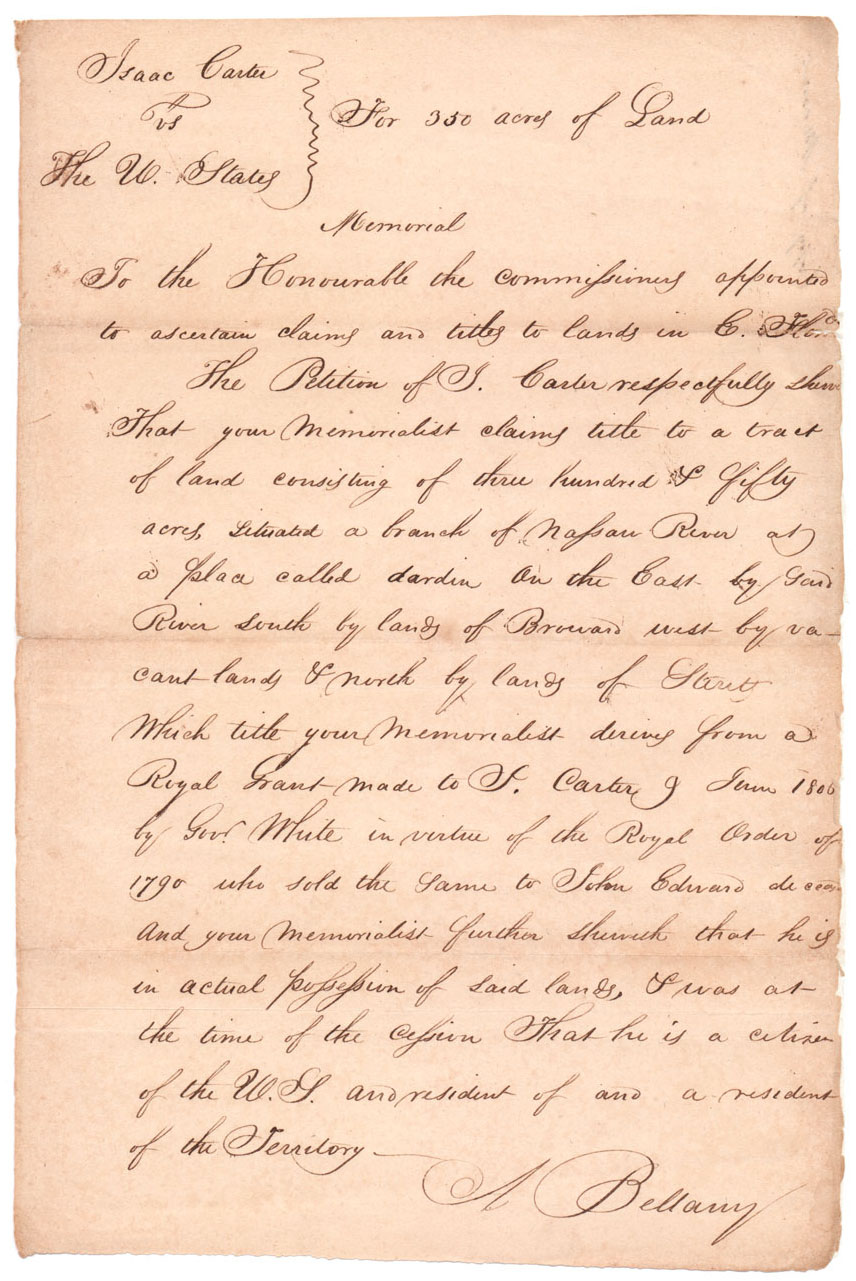 Isaac Carter
vs
The U. States
For 350 acres of Land
Memorial
To the Honourable the commissioners appointed
to ascertain claims and titles to lands in E. Flor
The Petition of I. Carter respectfully shew
That your Memorialist claims title to a tract
of land consisting of three hundred & fifty
acres, situated a branch of Nassau River at
a place called dardin On the East by said
River South by lands of Broward west by va-
cant lands & north by lands of
Which title your Memorialist derives from a
Royal Grant made to I. Carter 9 June 1806
by Govr. White in virtue of the Royal Order of
1790 who sold the same to John Edward
And your Memorialist further sheweth that he is
in actual possession of said lands, & was at
the time of the cession That he is a citizen
of the U.S. and resident of and a resident
of the Territory
A Bellamy